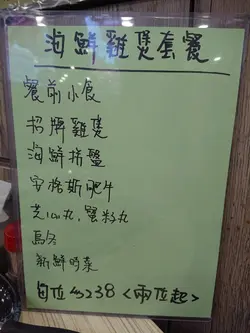 海鮮雞煲套餐
餐前小食
招牌雞煲
海鮮拼盤
安格斯肥牛
芝心丸,蟹籽丸
烏冬
新鮮時菜
每位$238<兩位起>